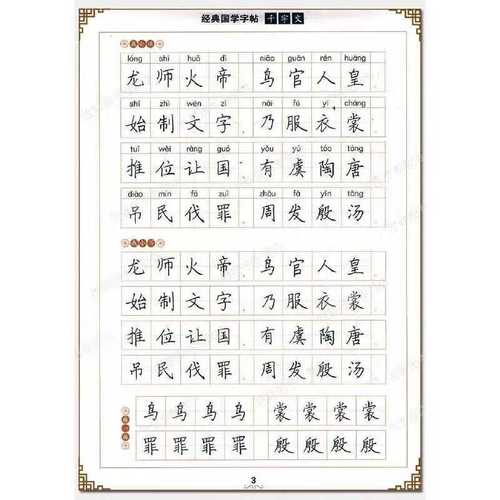 经典国学字帖 千字文
lóng shī huǒ dì niǎo guān rén huáng
龙师火帝 鸟官人皇
shǐ zhì wén zì nǎi fú yī cháng
始制文字 乃服衣裳
tuī wèi ràng guó yǒu yú táo táng
推位让国 有虞陶唐
diào mín fá zuì zhōu fā yīn tāng
吊民伐罪 周发殷汤
龙师火帝 鸟官人皇
始制文字 乃服衣裳
推位让国 有虞陶唐
吊民伐罪 周发殷汤
鸟鸟鸟鸟 裳裳裳裳
罪罪罪罪 殷殷殷殷
3